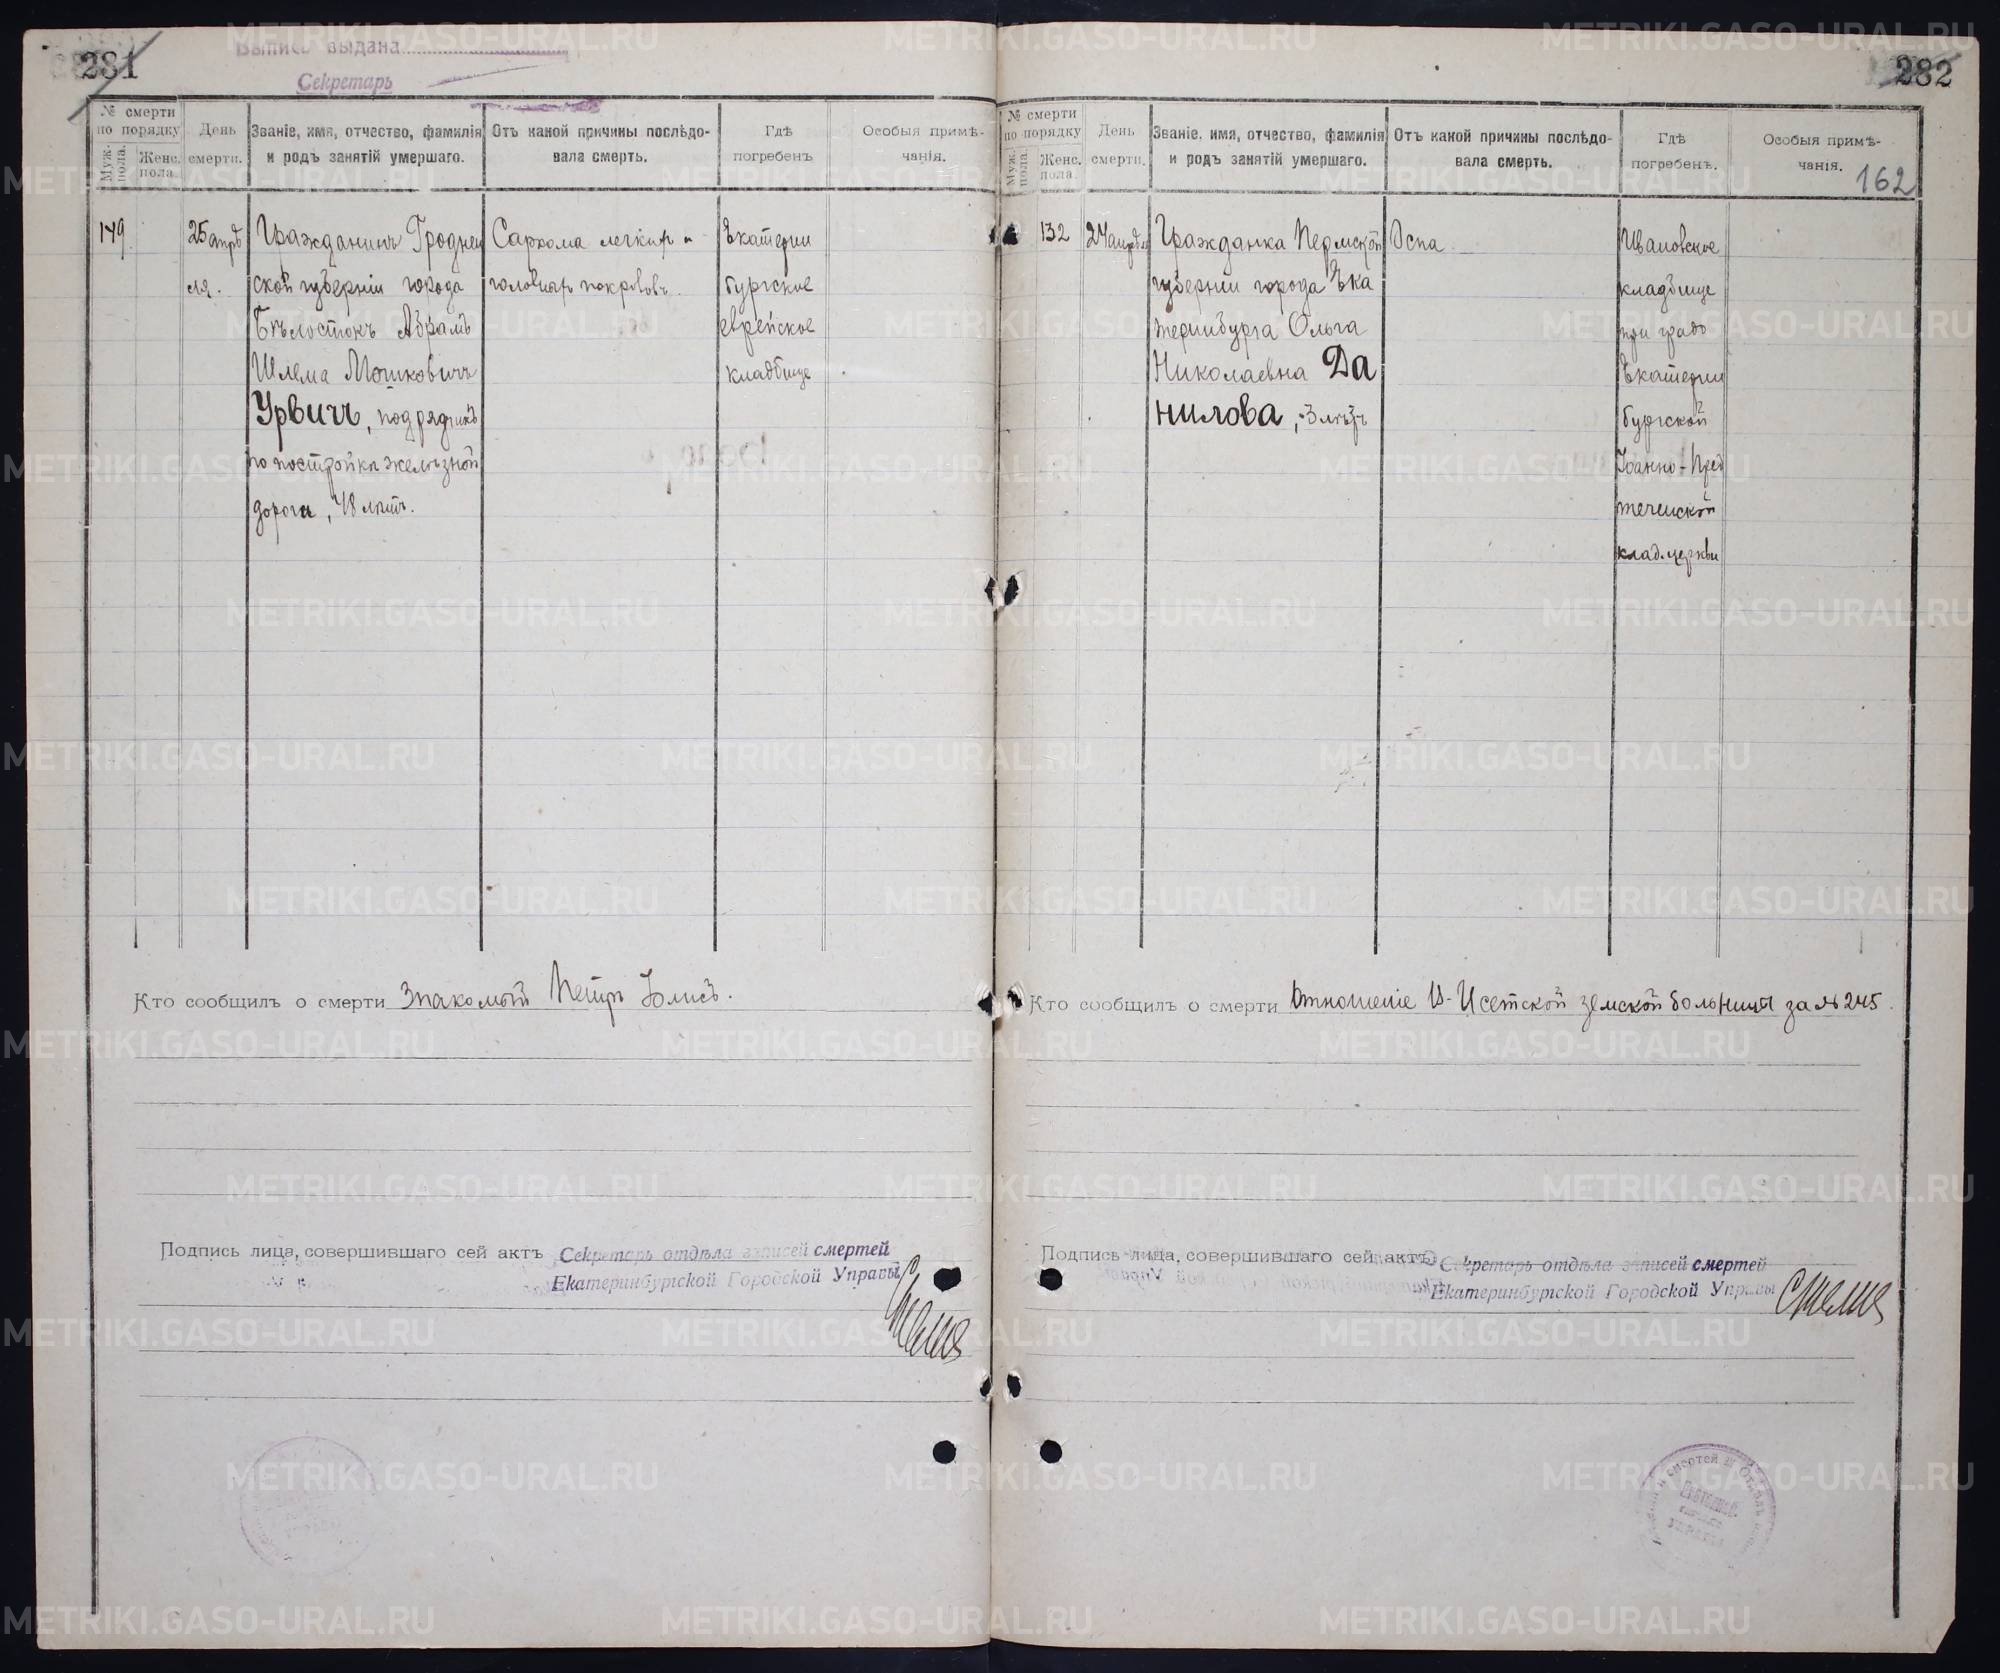 281
Выпись выдана
Секретарь
№ смерти по порядку
Муж. пола.
Женс. пола.
День смерти.
Званіе, имя, отчество, фамилія и родъ занятій умершаго.
Отъ какой причины послѣдовала смерть.
Гдѣ погребенъ
Особыя примѣчанія.
149
25 апрѣ
ля.
Гражданинъ Гроднен
ской губерніи города
Бѣлостокъ Абрамъ
Шлема Мошковичъ
Урвичъ, подрядчикъ
по постройкѣ желѣзной
дороги, 48 лѣтъ.
Саркома легкихъ и
головныхъ покрововъ.
Екатерин
бургское
еврейское
кладбище
Кто сообщилъ о смерти Знакомый Петръ
Подпись лица, совершившаго сей актъ Секретарь отдѣла записей смертей
Екатеринбургской Городской Управы
282
№ смерти по порядку
Муж. пола.
Женс. пола.
День смерти.
Званіе, имя, отчество, фамилія и родъ занятій умершаго.
Отъ какой причины послѣдовала смерть.
Гдѣ погребенъ.
Особыя примѣчанія.
162
132
24 апрѣля
Гражданка Пермской
губерніи города Ека
теринбурга Ольга
Николаевна Да
нилова, 3 лѣтъ
Оспа
Ивановское
кладбище
при градо
Екатерин
бургской
Іоанно-Пред
теченской
клад. церкви
Кто сообщилъ о смерти Отношеніе В-Исетской земской больницы за № 245.
Подпись лица, совершившаго сей актъ Секретарь отдѣла записей смертей
Екатеринбургской Городской Управы
METRIKI.GASO-URAL.RU